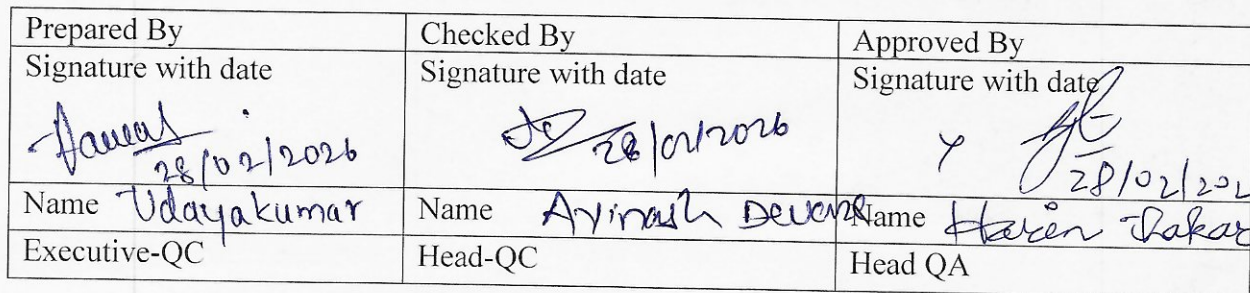 Prepared By Checked By Approved By
Signature with date Signature with date Signature with date
28/02/2026 28/02/2026 28/02/202
Name Udayakumar Name Avinash Name Haren
Executive-QC Head-QC Head QA